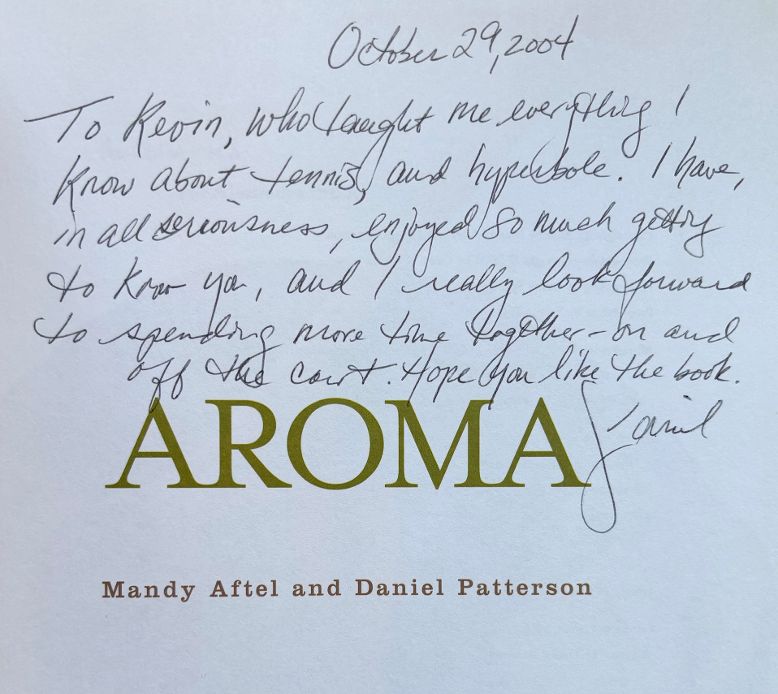 October 29, 2004
To Kevin, who taught me everything I
know about tennis, and hyperbole. I have,
in all seriousness, enjoyed so much getting
to know you, and I really look forward
to spending more time together - on and
off the court. Hope you like the book.
Daniel
AROMA
Mandy Aftel and Daniel Patterson